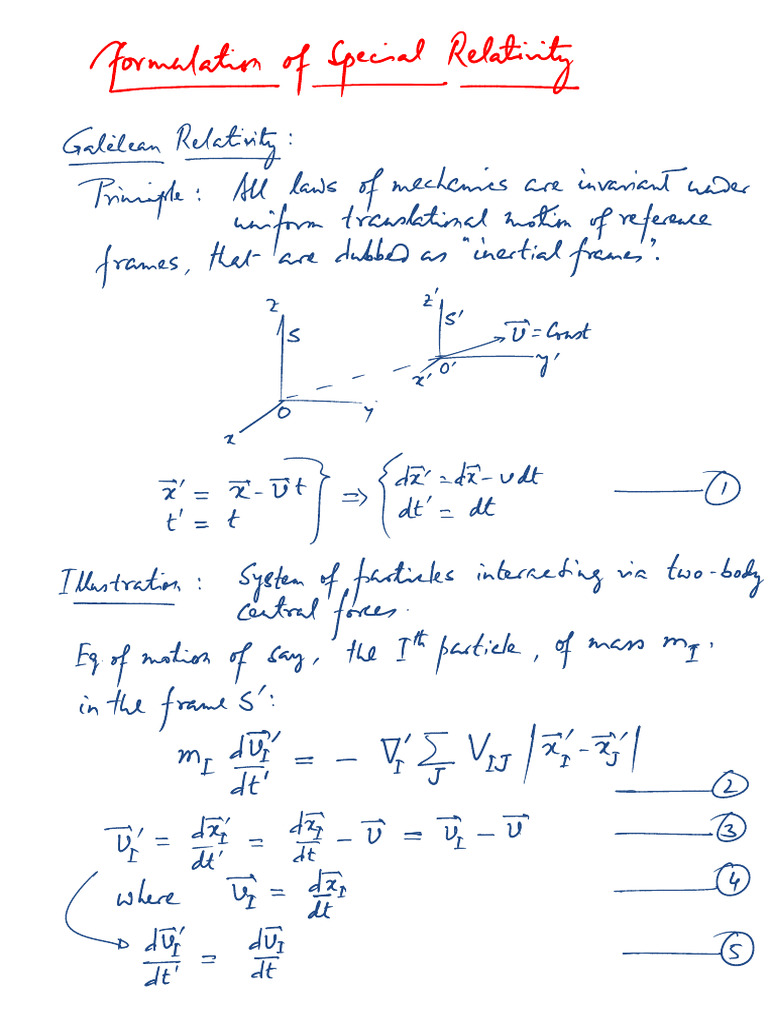 Formulation of Special Relativity
Galilean Relativity:
Principle: All laws of mechanics are invariant under
uniform translational motion of reference
frames, that are dubbed as "inertial frames".
z z'
S S' v⃗ = Const
O O' y'
x' y
x
x⃗' = x⃗ - v⃗t } ⇒ { dx⃗' = dx⃗ - vdt ——— ①
t' = t dt' = dt
Illustration: System of particles interacting via two-body
central forces.
Eq of motion of say, the Iᵗʰ particle, of mass m_I.
in the frame S':
m_I dv⃗_I'/dt' = - ∇_I' Σ_J V_IJ |x⃗_I' - x⃗_J'| ——— ②
v⃗_I' = dx⃗_I'/dt' = dx⃗_I/dt - v⃗ = v⃗_I - v⃗ ——— ③
where v⃗_I = dx⃗_I/dt ——— ④
dv⃗_I'/dt' = dv⃗_I/dt ——— ⑤